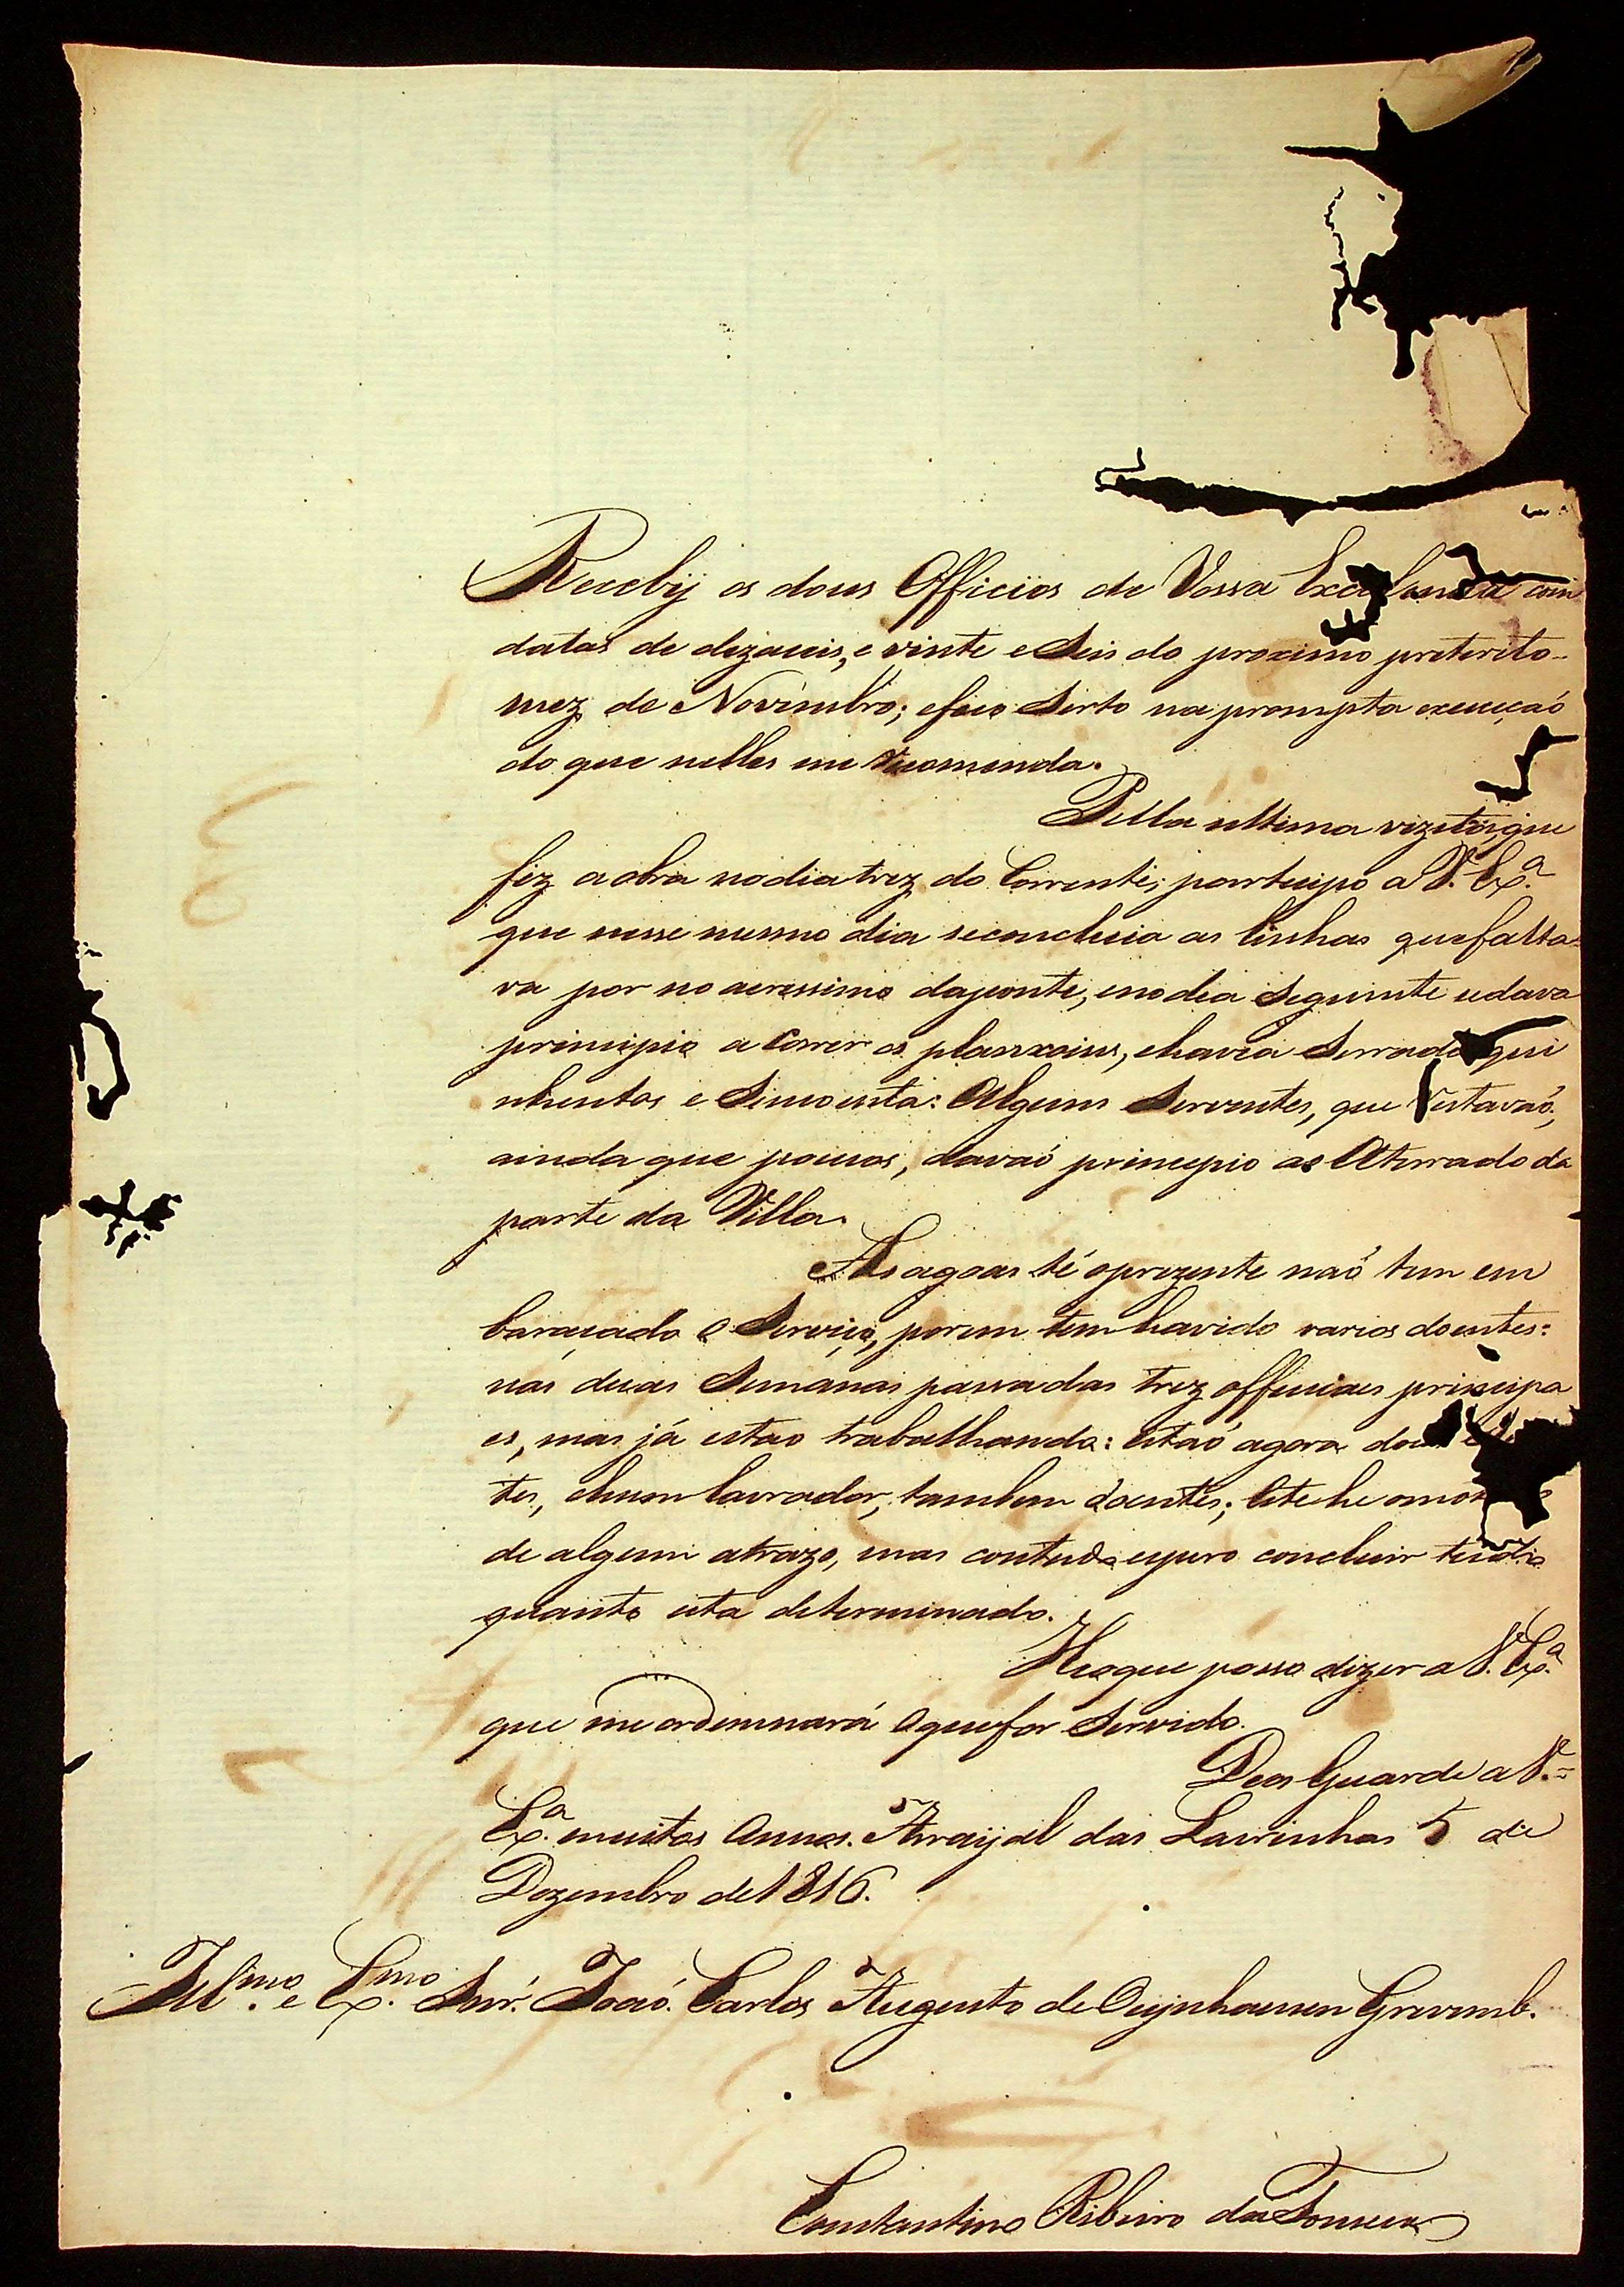 Recebij os dous Officios de Vossa Excelencia com
datas de dezaceis, e vinte e Seis do proximo preterito
mez de Novimbro; efico Serto na prompta execuçaó
do que nelles me recomenda.
Pella ultima vizita, que
fiz a obra no dia trez do Corrente; partecipo a V. Ex.ª
que nesse mesmo dia se concluia as Linhas que falta-
va por no acressimo da ponte, e no dia Seguinte se dava
principio a Correr os planxoins, e havia Serrado qui
nhentos e Sincoenta: Alguns Serventes, que restavaó,
ainda que poucos, davaó principio ao Aterrado da
parte da Villa.
As agoas té o prezente naó tem em
baraçado o Serviço, porem tem havido varios doentes:
nas duas Semanas passadas trez officiaes principa
es, mas já estao trabalhando: estaó agora
tes, e hum Lavrador, tambem doentes; Este he o
de algum atrazo, mas contudo espero concluir
quanto esta determinado.
He o que posso dizer a V. Ex.ª
que me ordennará o que for Servido.
Deos Guarde a V.
Ex.ª muitos Annos. Arraijal das Lavrinhas 5 de
Dezembro de 1816.
Ill.mo e Ex.mo Snr. Joaó Carlos Augusto de Oeynhausen Grevemb.
Constantino Ribeiro da Fonseca